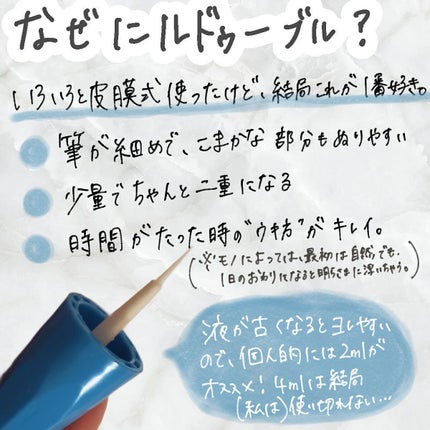 なぜにルドゥーブル？
いろいろと皮膜式使ったけど、結局これが1番好き。
筆が細めで、こまかな部分もぬりやすい
少量でちゃんと二重になる
時間がたった時の"ウキ方"がキレイ。
(※モノによっては、最初は自然でも、
1日のおわりになると明らさまに浮いちゃう。)
液が古くなるとヨレやすい
ので、個人的には2mlが
オススメ！4mlは結局
(私は)使い切れない…